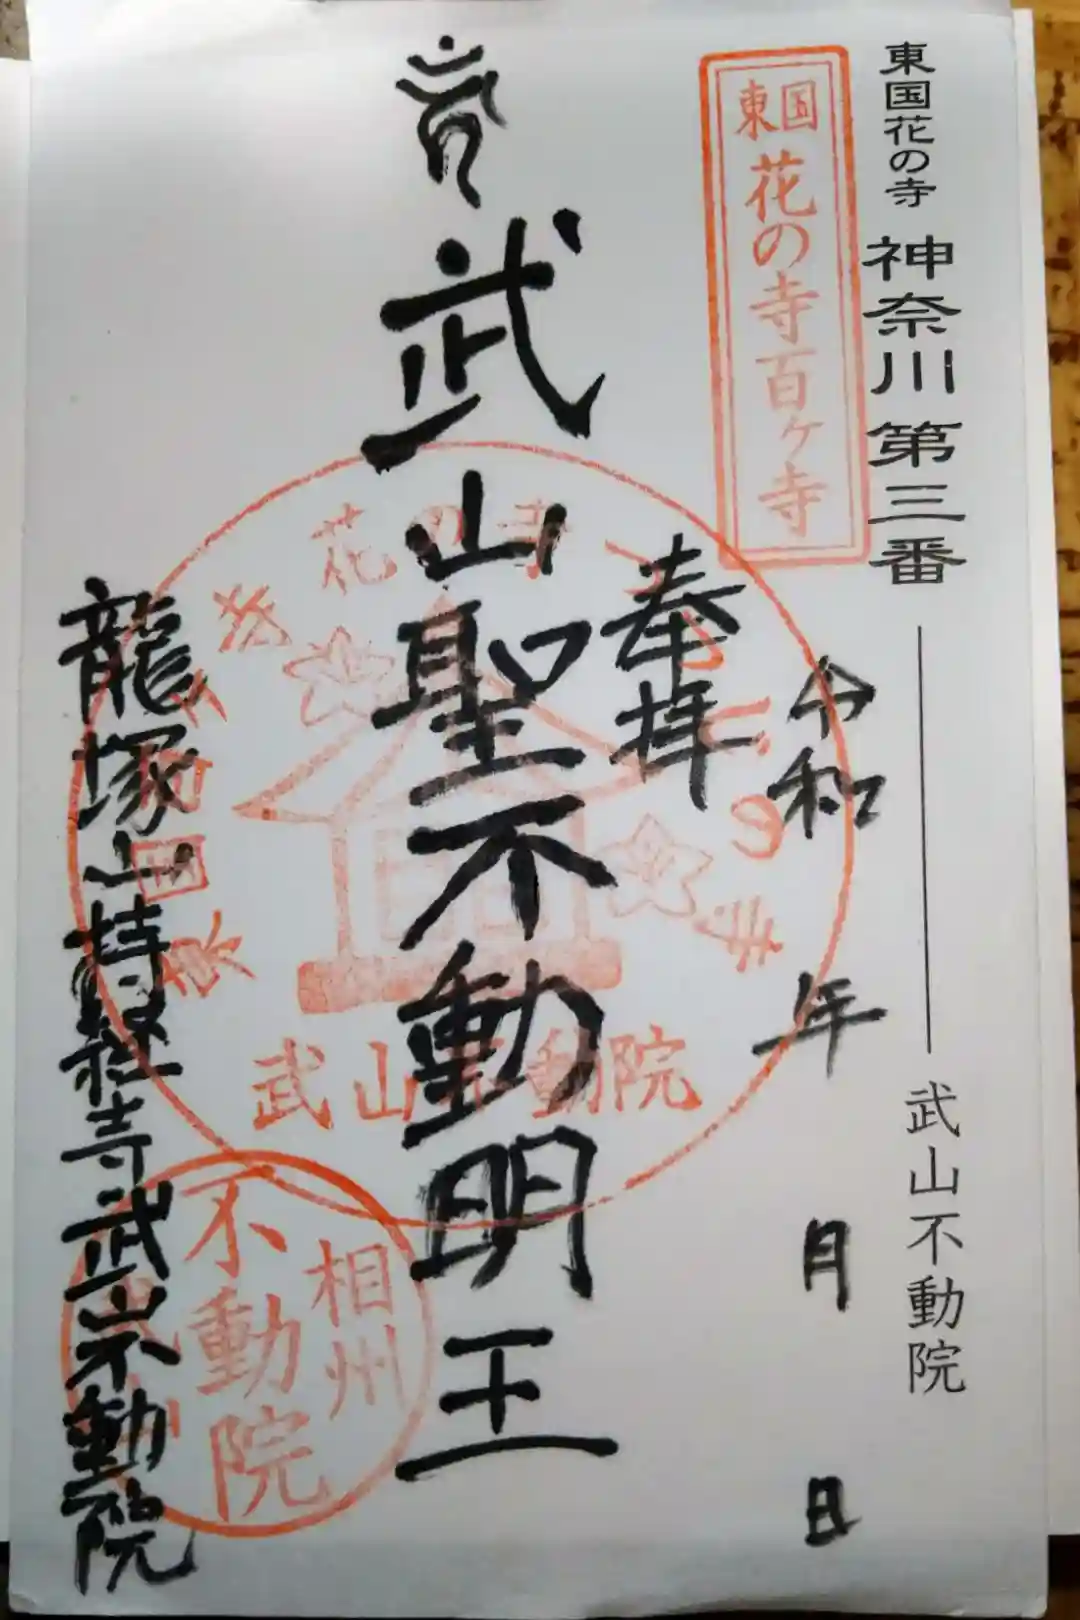 東国花の寺 神奈川第三番 武山不動院
東国
花の寺百ヶ寺
令和 年 月 日
奉拝
武山聖不動明王
龍塚山持経寺武山不動院
花の寺
武山不動院
相州
不動院